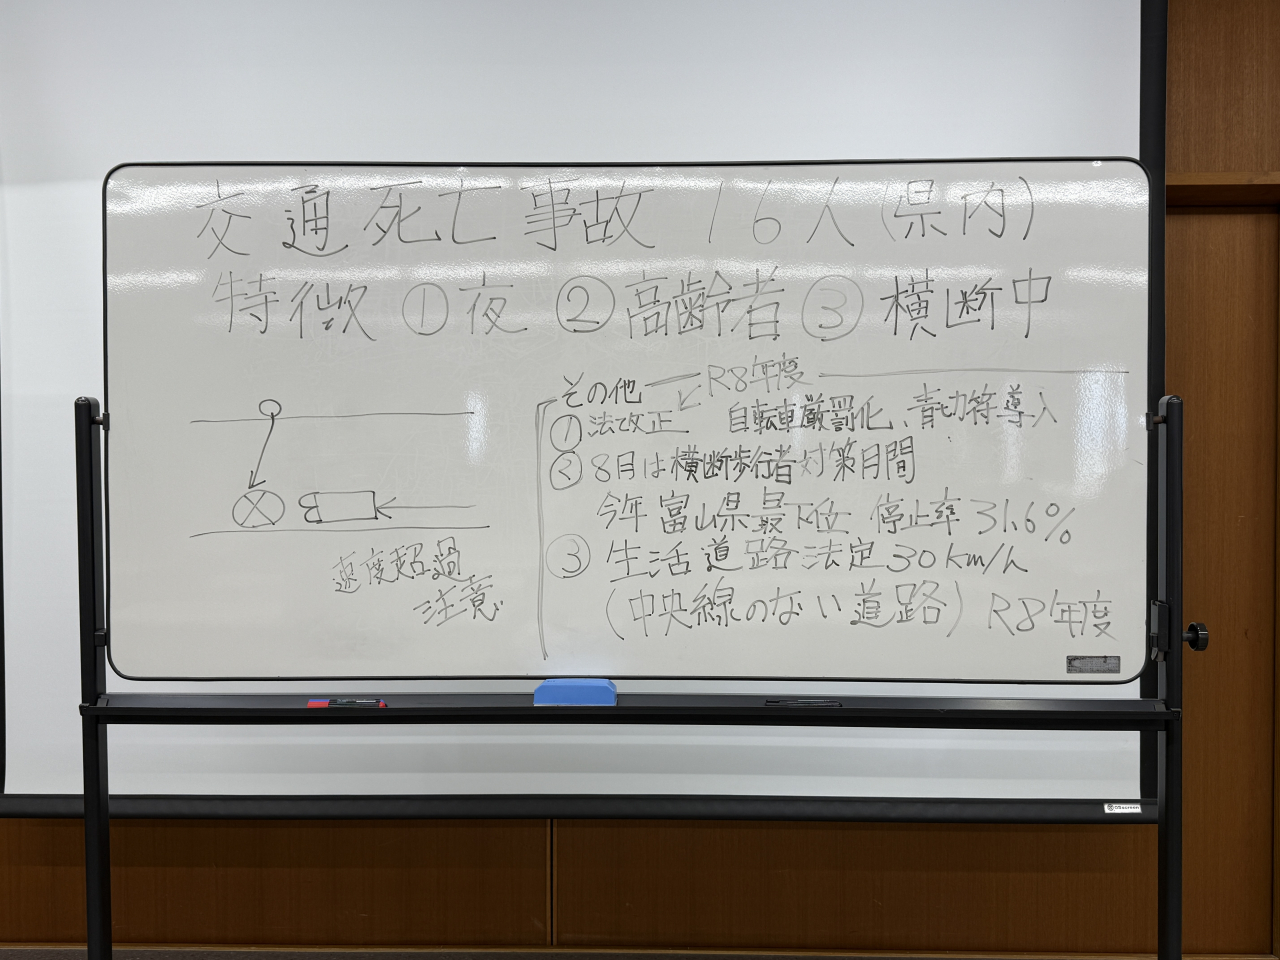 交通死亡事故 16人(県内)
特徴 ①夜 ②高齢者 ③横断中
その他 R8年度
①法改正 自転車厳罰化、青切符導入
②8月は横断歩行者対策月間
今年富山県最下位 停止率31.6%
③生活道路法定30km/h
(中央線のない道路) R8年度
速度超過
注意
OS SCREEN